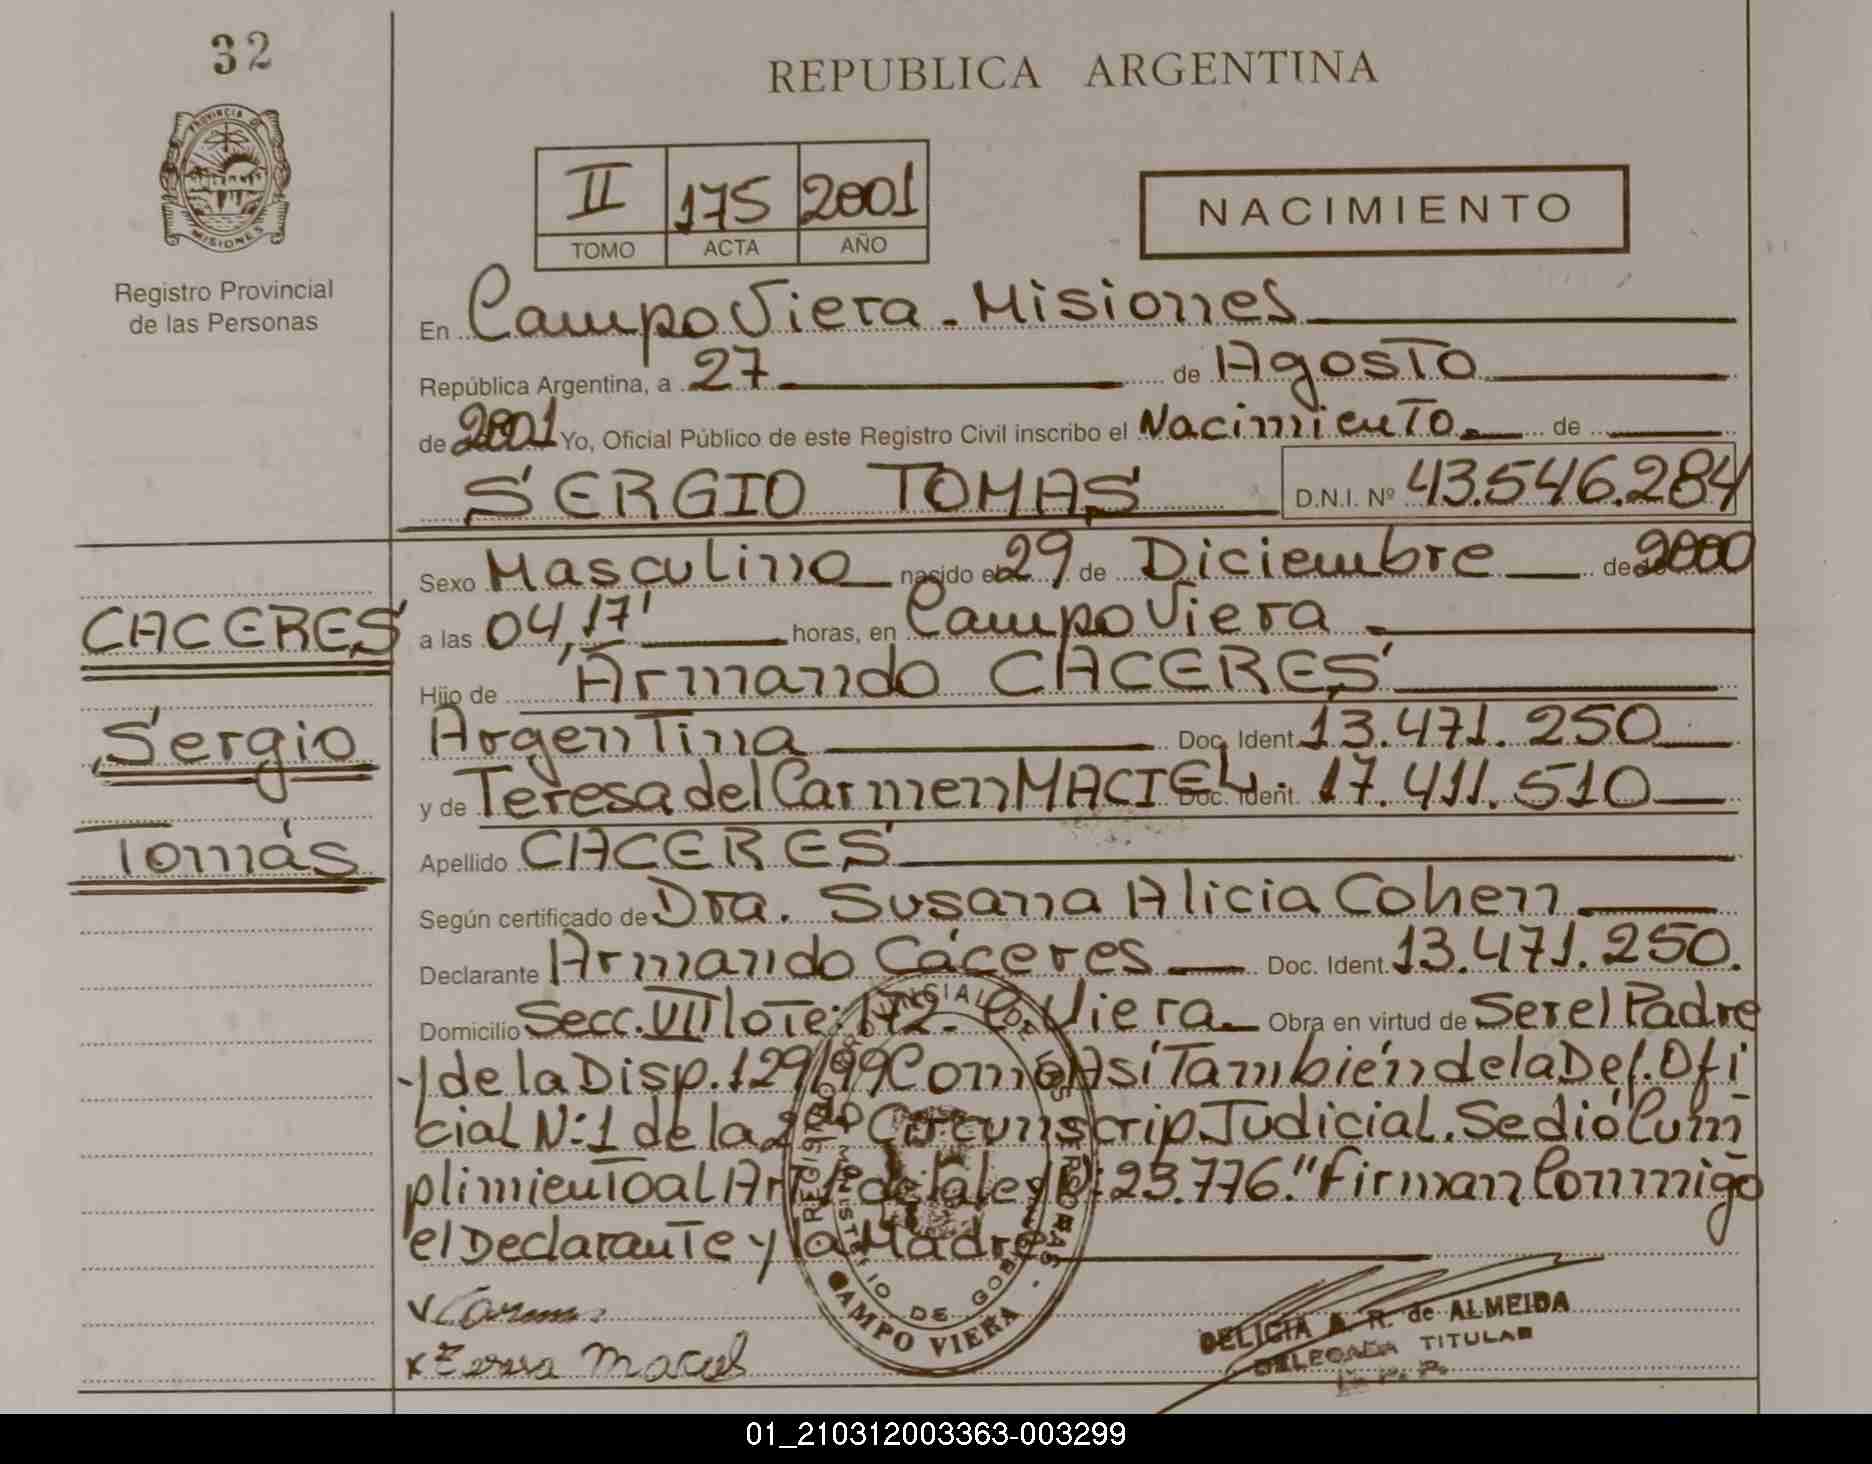 32
REPUBLICA ARGENTINA
PROVINCIA DE
MISIONES
Registro Provincial
de las Personas
II 175 2001
TOMO ACTA AÑO
NACIMIENTO
En Campo Viera - Misiones
República Argentina, a 27 de Agosto
de 2001 Yo, Oficial Público de este Registro Civil inscribo el Nacimiento de
SERGIO TOMAS D.N.I. Nº 43.546.284
Sexo Masculino nacido el 29 de Diciembre de 2000
CACERES
a las 04,17' horas, en Campo Viera
Hijo de Armando CACERES
Sergio
Argentina Doc. Ident. 13.471.250
y de Teresa del Carmen MACIEL Doc. Ident. 17.411.510
Tomás
Apellido CACERES
Según certificado de Dra. Susana Alicia Cohen
Declarante Armando Cáceres Doc. Ident. 13.471.250.
Domicilio Secc. VIII lote: 172 - C. Viera. Obra en virtud de Ser el Padre
y de la Disp. 129/99 Como Así También de la Def. Ofi
cial Nº:1 de la 2da Circunscrip. Judicial. Se dió Cum
plimiento al Art. de la ley Nº: 23.776." Firman Conmigo
el Declarante y la Madre
REGISTRO PROVINCIAL DE LAS PERSONAS
MINISTERIO DE GOBIERNO
CAMPO VIERA
DELICIA A. R. de ALMEIDA
DELEGADA TITULAR
R. P. P.
01_210312003363-003299